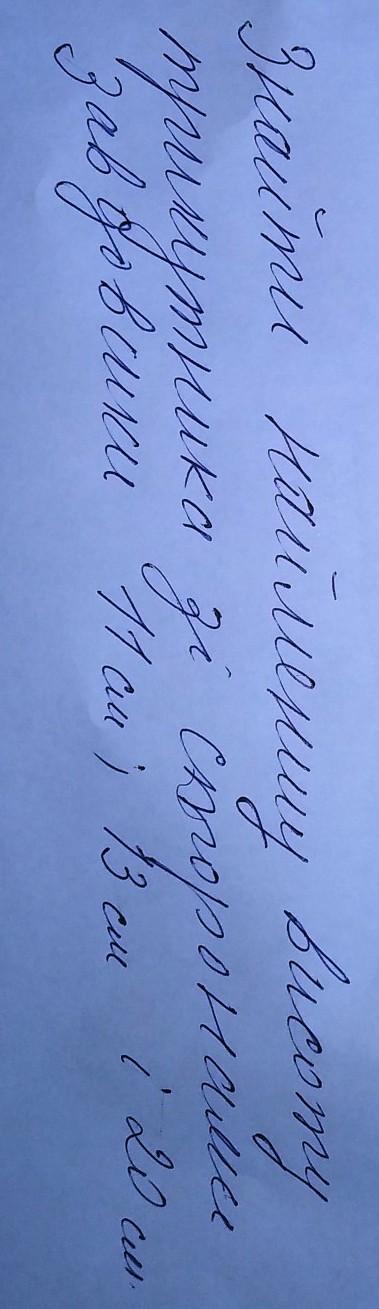 Знайти найменшу висоту
трикутника зі сторонами
завдовжки 11 см, 13 см і 20 см.